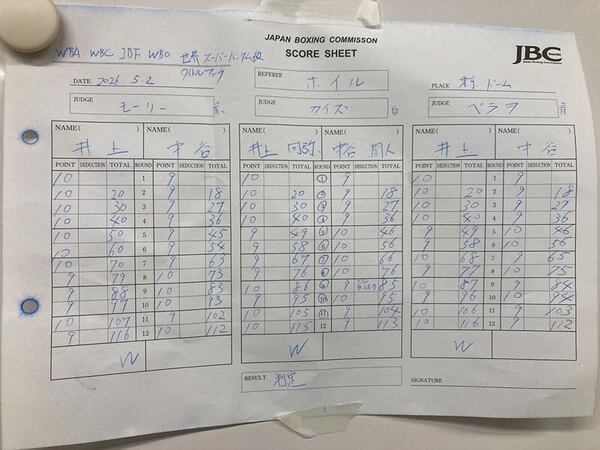 JAPAN BOXING COMMISSON
SCORE SHEET
JBC
WBA WBC IBF WBO 世界 スーパーバンタム級
タイトルマッチ
DATE 2026 5.2 REFEREE ホイル PLACE 東京ドーム
JUDGE モーリー JUDGE カイズ JUDGE ペラヨ
NAME( ) NAME( ) NAME( ) NAME( ) NAME( ) NAME( )
井上 中谷 井上 尚弥 中谷 潤人 井上 中谷
POINT DEDUCTION TOTAL ROUND POINT DEDUCTION TOTAL POINT DEDUCTION TOTAL ROUND POINT DEDUCTION TOTAL POINT DEDUCTION TOTAL ROUND POINT DEDUCTION TOTAL
10 1 9 10 1 9 10 1 9
10 20 2 9 18 10 20 2 9 18 10 20 2 9 18
10 30 3 9 27 10 30 3 9 27 10 30 3 9 27
10 40 4 9 36 10 40 4 9 36 10 40 4 9 36
10 50 5 9 45 9 49 5 10 46 9 49 5 10 46
10 60 6 9 54 9 58 6 10 56 9 58 6 10 56
10 70 7 9 63 9 67 7 10 66 10 68 7 9 65
9 79 8 10 73 9 76 8 10 76 9 77 8 10 75
9 88 9 10 83 10 86 9 9 85 10 87 9 9 84
9 97 10 10 93 9 95 10 10 95 9 96 10 10 94
10 107 11 9 102 10 105 11 9 104 10 106 11 9 103
9 116 12 10 112 10 115 12 9 113 10 116 12 9 112
W W W
RESULT 判定 SIGNATURE